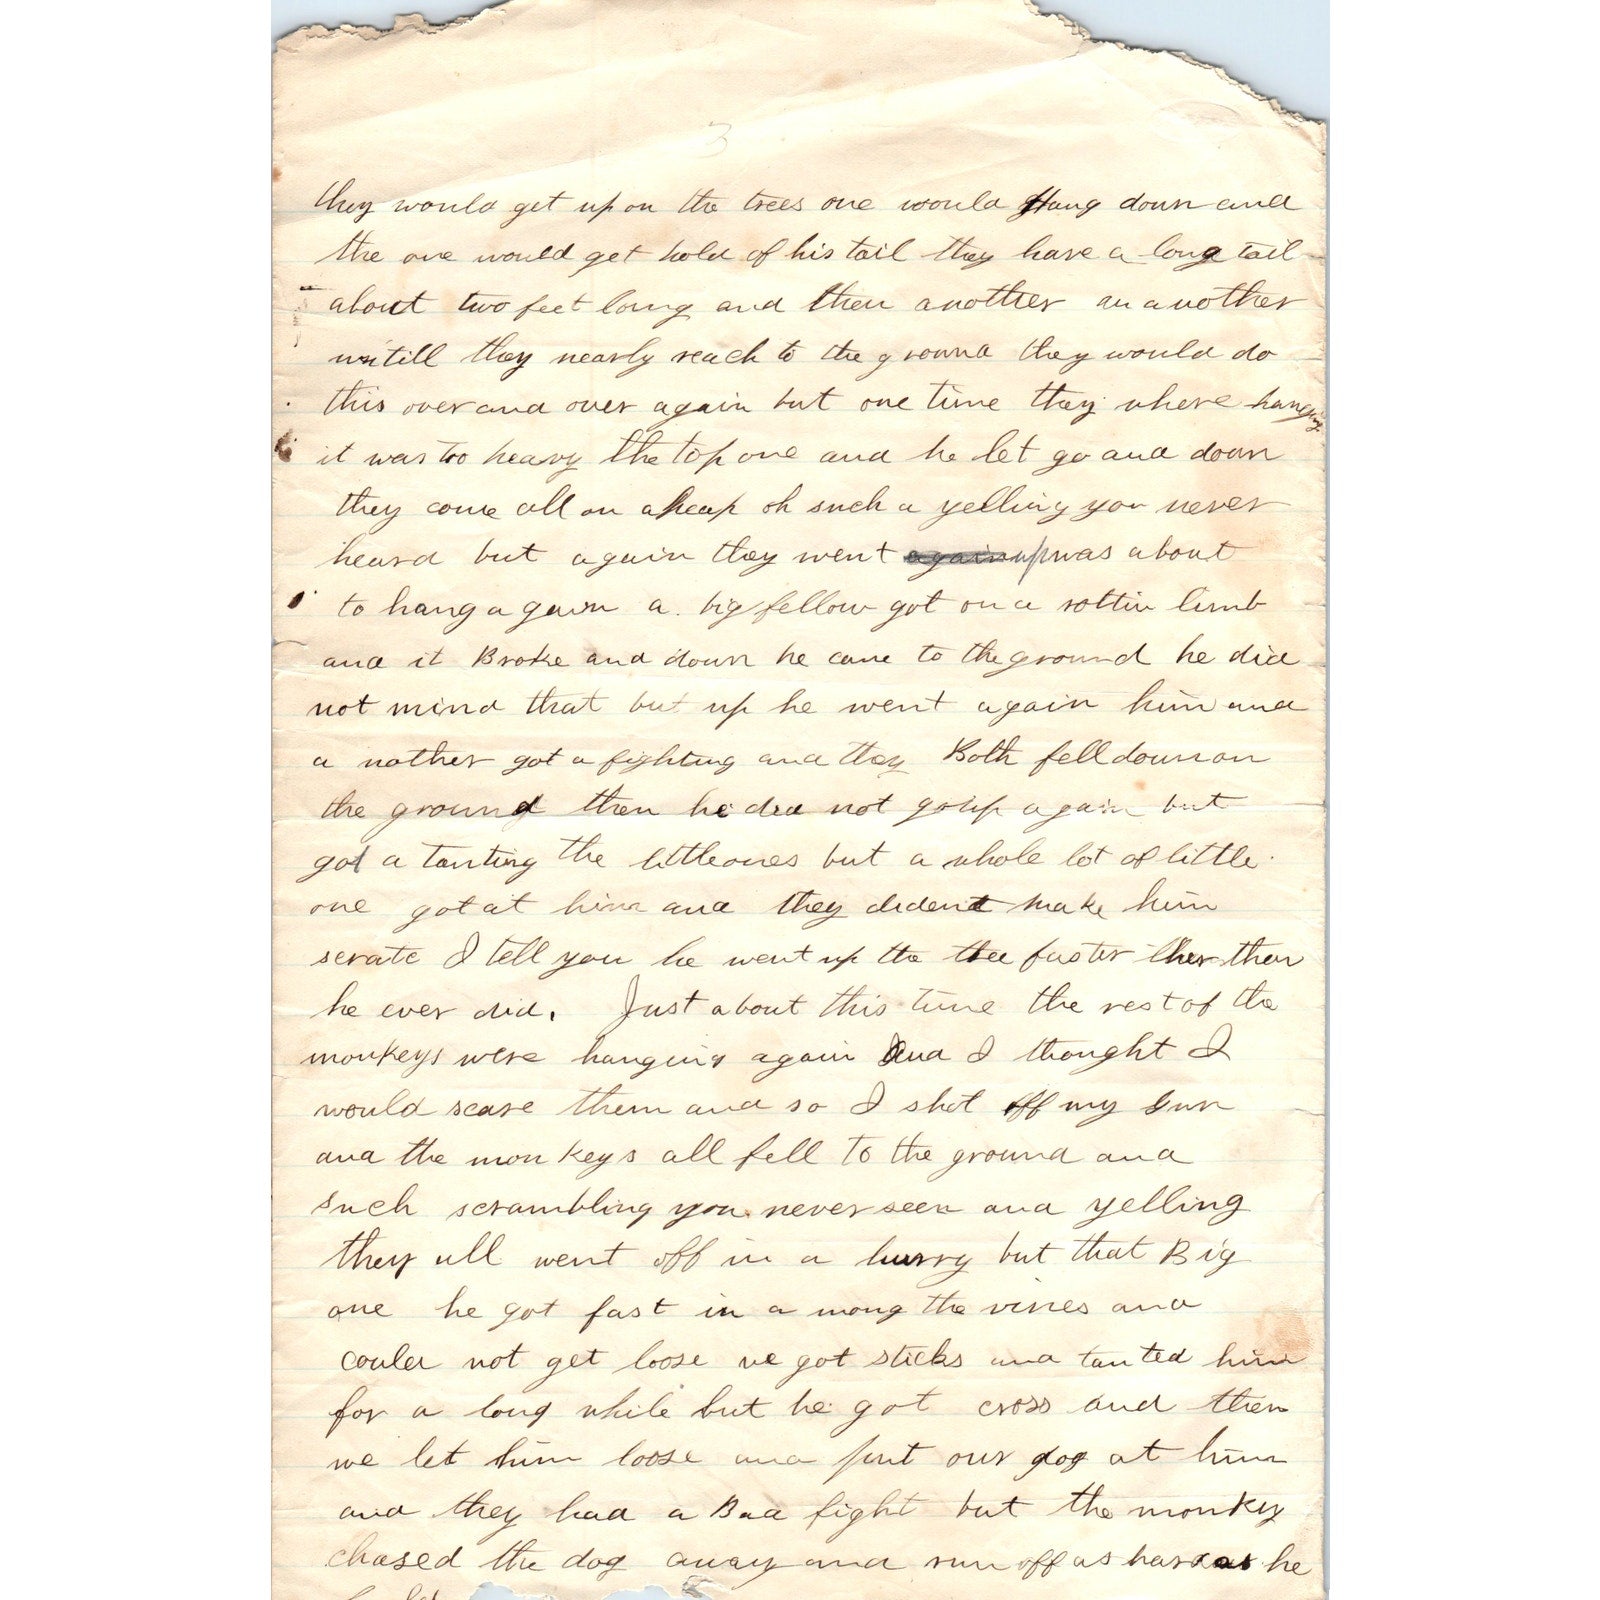 3
they would get up on the trees one would Hang down and
the one would get hold of his tail they have a long tail
about two feet long and then another an another
untill they nearly reach to the ground they would do
this over and over again but one time they where hanging
it was too heavy the top one and he let go and down
they come all on a heap oh such a yelling you never
heard but again they went again up was about
to hang again a big fellow got on a rottin limb
and it Broke and down he came to the ground he did
not mind that but up he went again him and
a nother got a fighting and they Both fell down on
the ground then he did not go up again but
got a tanting the little ones but a whole lot of little
one got at him and they dident make him
scrate I tell you he went up the tree faster then
he ever did. Just about this time the rest of the
monkeys were hanging again and I thought I
would scare them and so I shot off my gun
and the monkeys all fell to the ground and
such scrambling you never seen and yelling
they all went off in a hurry but that Big
one he got fast in a mong the vines and
could not get loose we got sticks and tanted him
for a long while but he got cross and then
we let him loose and put our dog at him
and they had a Bad fight but the monkey
chased the dog away and run off as hard as he